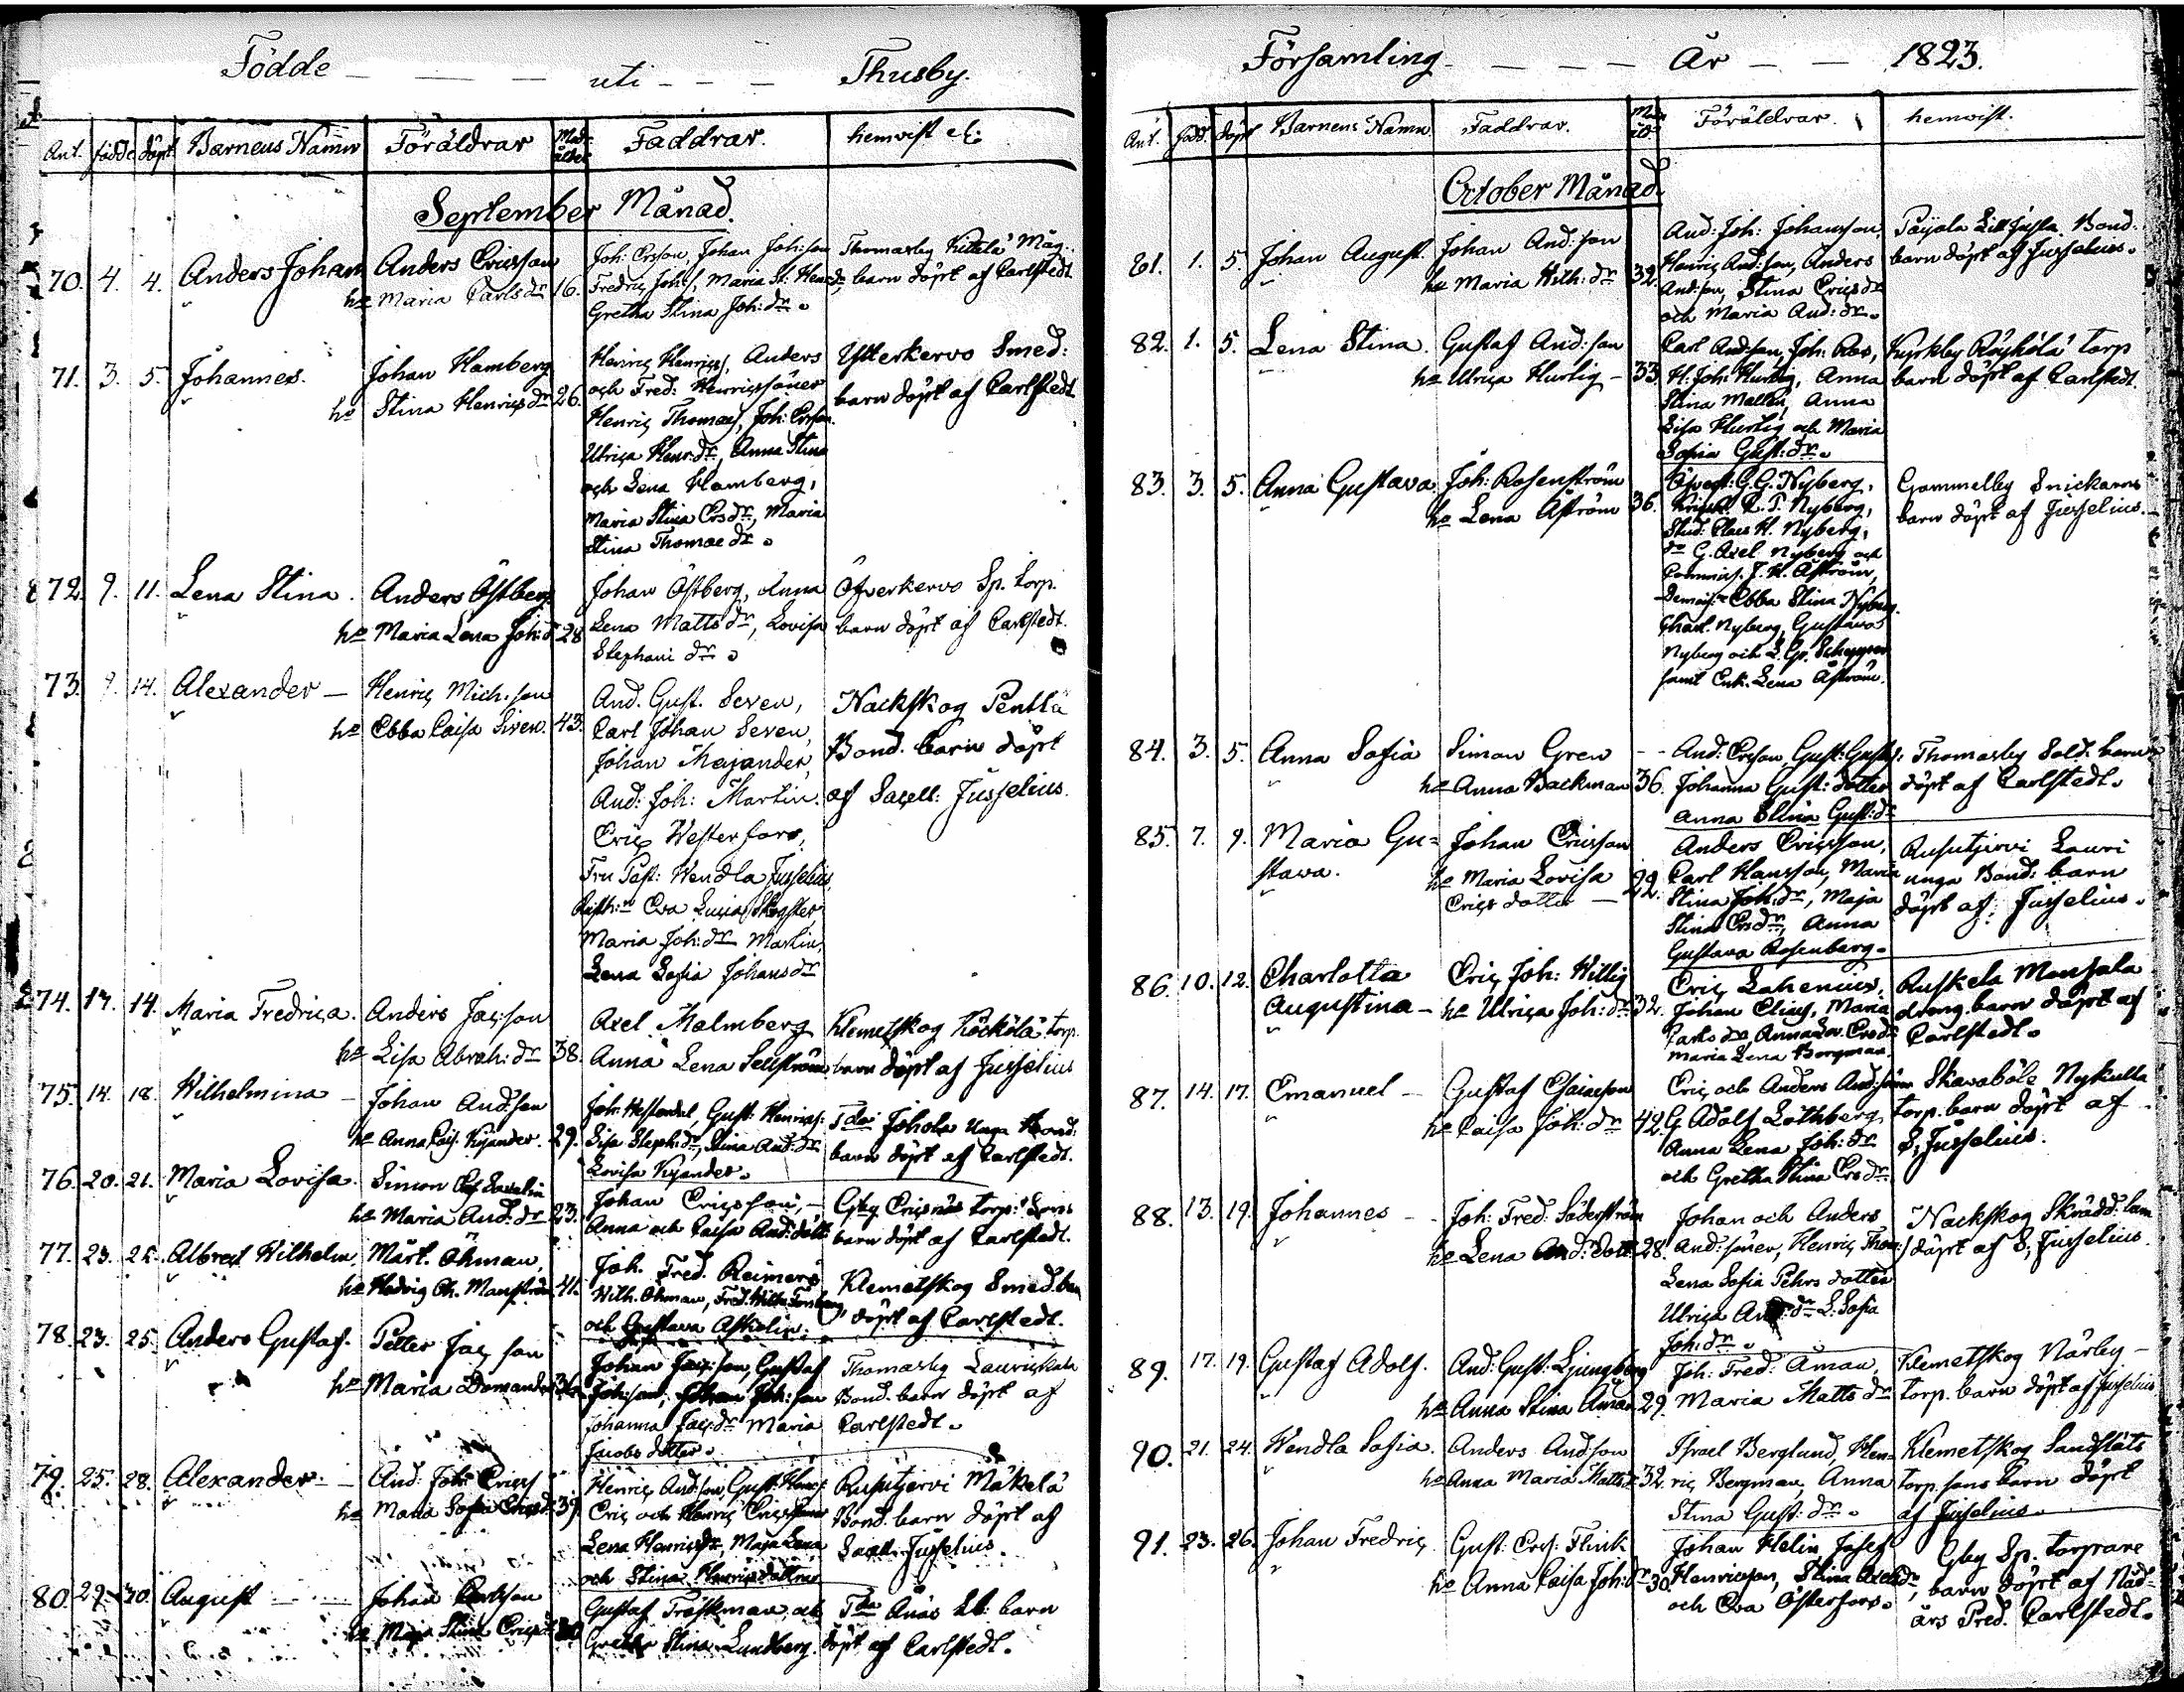 Födde uti Thusby.
Ant. född döpt Barnens Namn Föräldrar Mod. ålder Faddrar. hemvist &:
September Månad.
70. 4. 4. Anders Johan
Anders Ericsson
hu Maria Carlsdr 16.
Joh: Ersson, Johan Joh:son
Fredric Joh:s, Maria St. Henr.dr,
Gretha Stina Joh:dr.
Thomasby Kittelä Mäg.
barn döpt af Carlstedt
71. 3. 5. Johannes.
Johan Hamberg
hu Stina Henricsdr 26.
Henric Henrics, Anders
och Fred: Henricssöner
Henric Thomas, Joh: Ersson.
Ulrica Henr:dr, Anna Stina
och Lena Hamberg,
Maria Stina Ersdr, Maria
Stina Thomae dr.
Ytterkervo Smed:
barn döpt af Carlstedt
72. 9. 11. Lena Stina.
Anders Östberg
hu Maria Lena Joh:dr 28
Johan Östberg, Anna
Lena Mattsdr, Lovisa
Stephani dr.
Öfverkervo Sp. torp.
barn döpt af Carlstedt.
73. 9. 14. Alexander
Henric Mich:son
hu Ebba Caisa Siven. 43.
And. Gust. Seven,
Carl Johan Seven,
Johan Majander,
And: Joh: Martin,
Eric Westerfors,
Fru Past: Wendla Jusselius,
Eva Lucia Skogster
Maria Joh:dr Martin,
Lena Sofia Johansdr
Nackskog Pentlä
Bond. barn döpt
af Sacell: Jusselius.
74. 14. Maria Fredrica.
Anders Jac:son
hu Lisa Abrah:dr 38.
Axel Malmberg
Anna Lena Sellström
Klemetskog Köckölä torp.
barn döpt af Jusselius
75. 14. 18. Wilhelmina
Johan And:son
hu Anna Cajs. Kyander. 29.
Joh: Gust: Henrics:
Lisa Steph:dr, Stina And:dr
Lovisa Kyander.
Tdes Johola unga Bond:
barn döpt af Carlstedt.
76. 20. 21. Maria Lovisa.
Simon
hu Maria And:dr 23.
Johan Ericsson,
Anna och Caisa And:dött
Gby Ericsnäs torp:
barn döpt af Carlstedt.
77. 23. 25. Albrect Wilhelm
Mårt. Öhman,
hu Hedvig Ch. Manström 41.
Joh. Fred. Reimers
Wilh. Öhman, Fred.
och Gustava Askolin.
Klemetskog Smed. barn
döpt af Carlstedt.
78. 23. 25. Anders Gustaf.
Petter Jac son
hu Maria Domander 36.
Johan Jac:son, Gustaf
Joh:son, Johan Joh:son
Johanna Jac:dr Maria
Jacobs dotter.
Thomasby Laurickala
Bond. barn döpt af
Carlstedt.
79. 25. 28. Alexander.
And. Joh: Erics
hu Maria Sofia Ericsd: 39.
Henric And:son, Gust: Henr:
Eric och Henric Ericssöner
Lena Henricsdr, Maja Lena
och Stina Henricsdöttrar
Rusutjervi Mäkelä
Bond. barn döpt af
Sacell. Jusselius.
80. 29. 30. August
Johan Carlsson
hu Maja Stina Ericsd
Gustaf Träskman, och
Gretha Stina Lundberg.
Tdes Ånäs barn
döpt af Carlstedt.
Församling År 1823.
Ant. född. döpt Barnens Namn Faddrar. Mod. åld. Föräldrar. hemvist.
October Månad.
81. 1. 5. Johan August.
Johan And:son
hu Maria Wilh:dr 32.
And: Joh: Johansson,
Henric And:son, Anders
And:son, Stina Ericsdr
och Maria And:dr.
Paijala Bond.
barn döpt af Jusselius.
82. 1. 5. Lena Stina.
Gustaf And:son
hu Ulrica Hurtig 33.
Carl And:son, Joh: Ros,
H: Joh: Hurtig, Anna
Stina Anna
Lisa Hurtig och Maria
Sofia Gust:dr.
Kyrkby Röyhölä torp
barn döpt af Carlstedt.
83. 3. 5. Anna Gustava
Joh: Rosenström
hu Lena Åström 36.
G. G. Nyberg,
C. T. Nyberg,
Stud. Claes H. Nyberg,
do G. Axel Nyberg och
Commiss. J. H. Åström,
Demois: Ebba Stina Nyberg.
Charl. Nyberg, Gustava
Nyberg och
samt Enk. Lena Åström.
Gammelby Snickarns
barn döpt af Jusselius.
84. 3. 5. Anna Sofia
Simon Gren
hu Anna Backman 36.
And: Ersson, Gust: Gusts:
Johanna Gust: dotter
Anna Stina Gust:dr
Thomasby Sold: barn
döpt af Carlstedt.
85. 7. 9. Maria Gu=
stava.
Johan Ericsson
hu Maria Lovisa 22.
Erics dotter
Anders Ericsson,
Carl Hansson, Maria
Stina Joh:dr, Maja
Stina Ersdr, Anna
Gustava Rosenberg.
Rusutjervi Lauri
unga Bond: barn
döpt af: Jusselius.
86. 10. 12. Charlotta
Augustina
Eric Joh: Willig
hu Ulrica Joh:dr 32.
Eric Lahenius,
Johan Elias, Maria
Carls dr, Anna Lov. Ersdr
Maria Lena Borgman.
Ruskela Monsala
dreng barn döpt af
Carlstedt.
87. 14. 17. Emanuel
Gustaf Esaiaeson
hu Caisa Joh:dr 42.
Eric och Anders And:söner
G. Adolf Löthberg
Anna Lena Joh:dr
och Gretha Stina Ersdr
Skavaböle Nykulla
torp. barn döpt af
S. Jusselius.
88. 13. 19. Johannes
Joh: Fred. Söderström
hu Lena And: Dott. 28.
Johan och Anders
And:söner, Henric Thom:s
Lena Sofia Pehrs dotter
Ulrica And:dr L. Sofia
Joh:dr.
Nackskog Skrädd: barn
döpt af S. Jusselius.
89. 17. 19. Gustaf Adolf.
And: Gust: Ljungberg
hu Anna Stina Åman 29.
Joh: Fred: Åman,
Maria Matts dr
Klemetskog Närby
torp. barn döpt af Jusselius
90. 21. 24. Wendla Sofia.
Anders And:son
hu Anna Maria Matts:dr 32.
Israel Berglund, Hen=
ric Bergman, Anna
Stina Gust:dr.
Klemetskog Sandsläts
torp. sons barn döpt
af Jusselius.
91. 23. 26. Johan Fredric
Gust: Ers: Flink
hu Anna Caisa Joh:dr 30.
Johan Helin Josef
Henricsson, Stina Axelsdr,
och Eva Österfors.
Gby Sp. torpare
barn döpt af Nåd=
års Pred. Carlstedt.